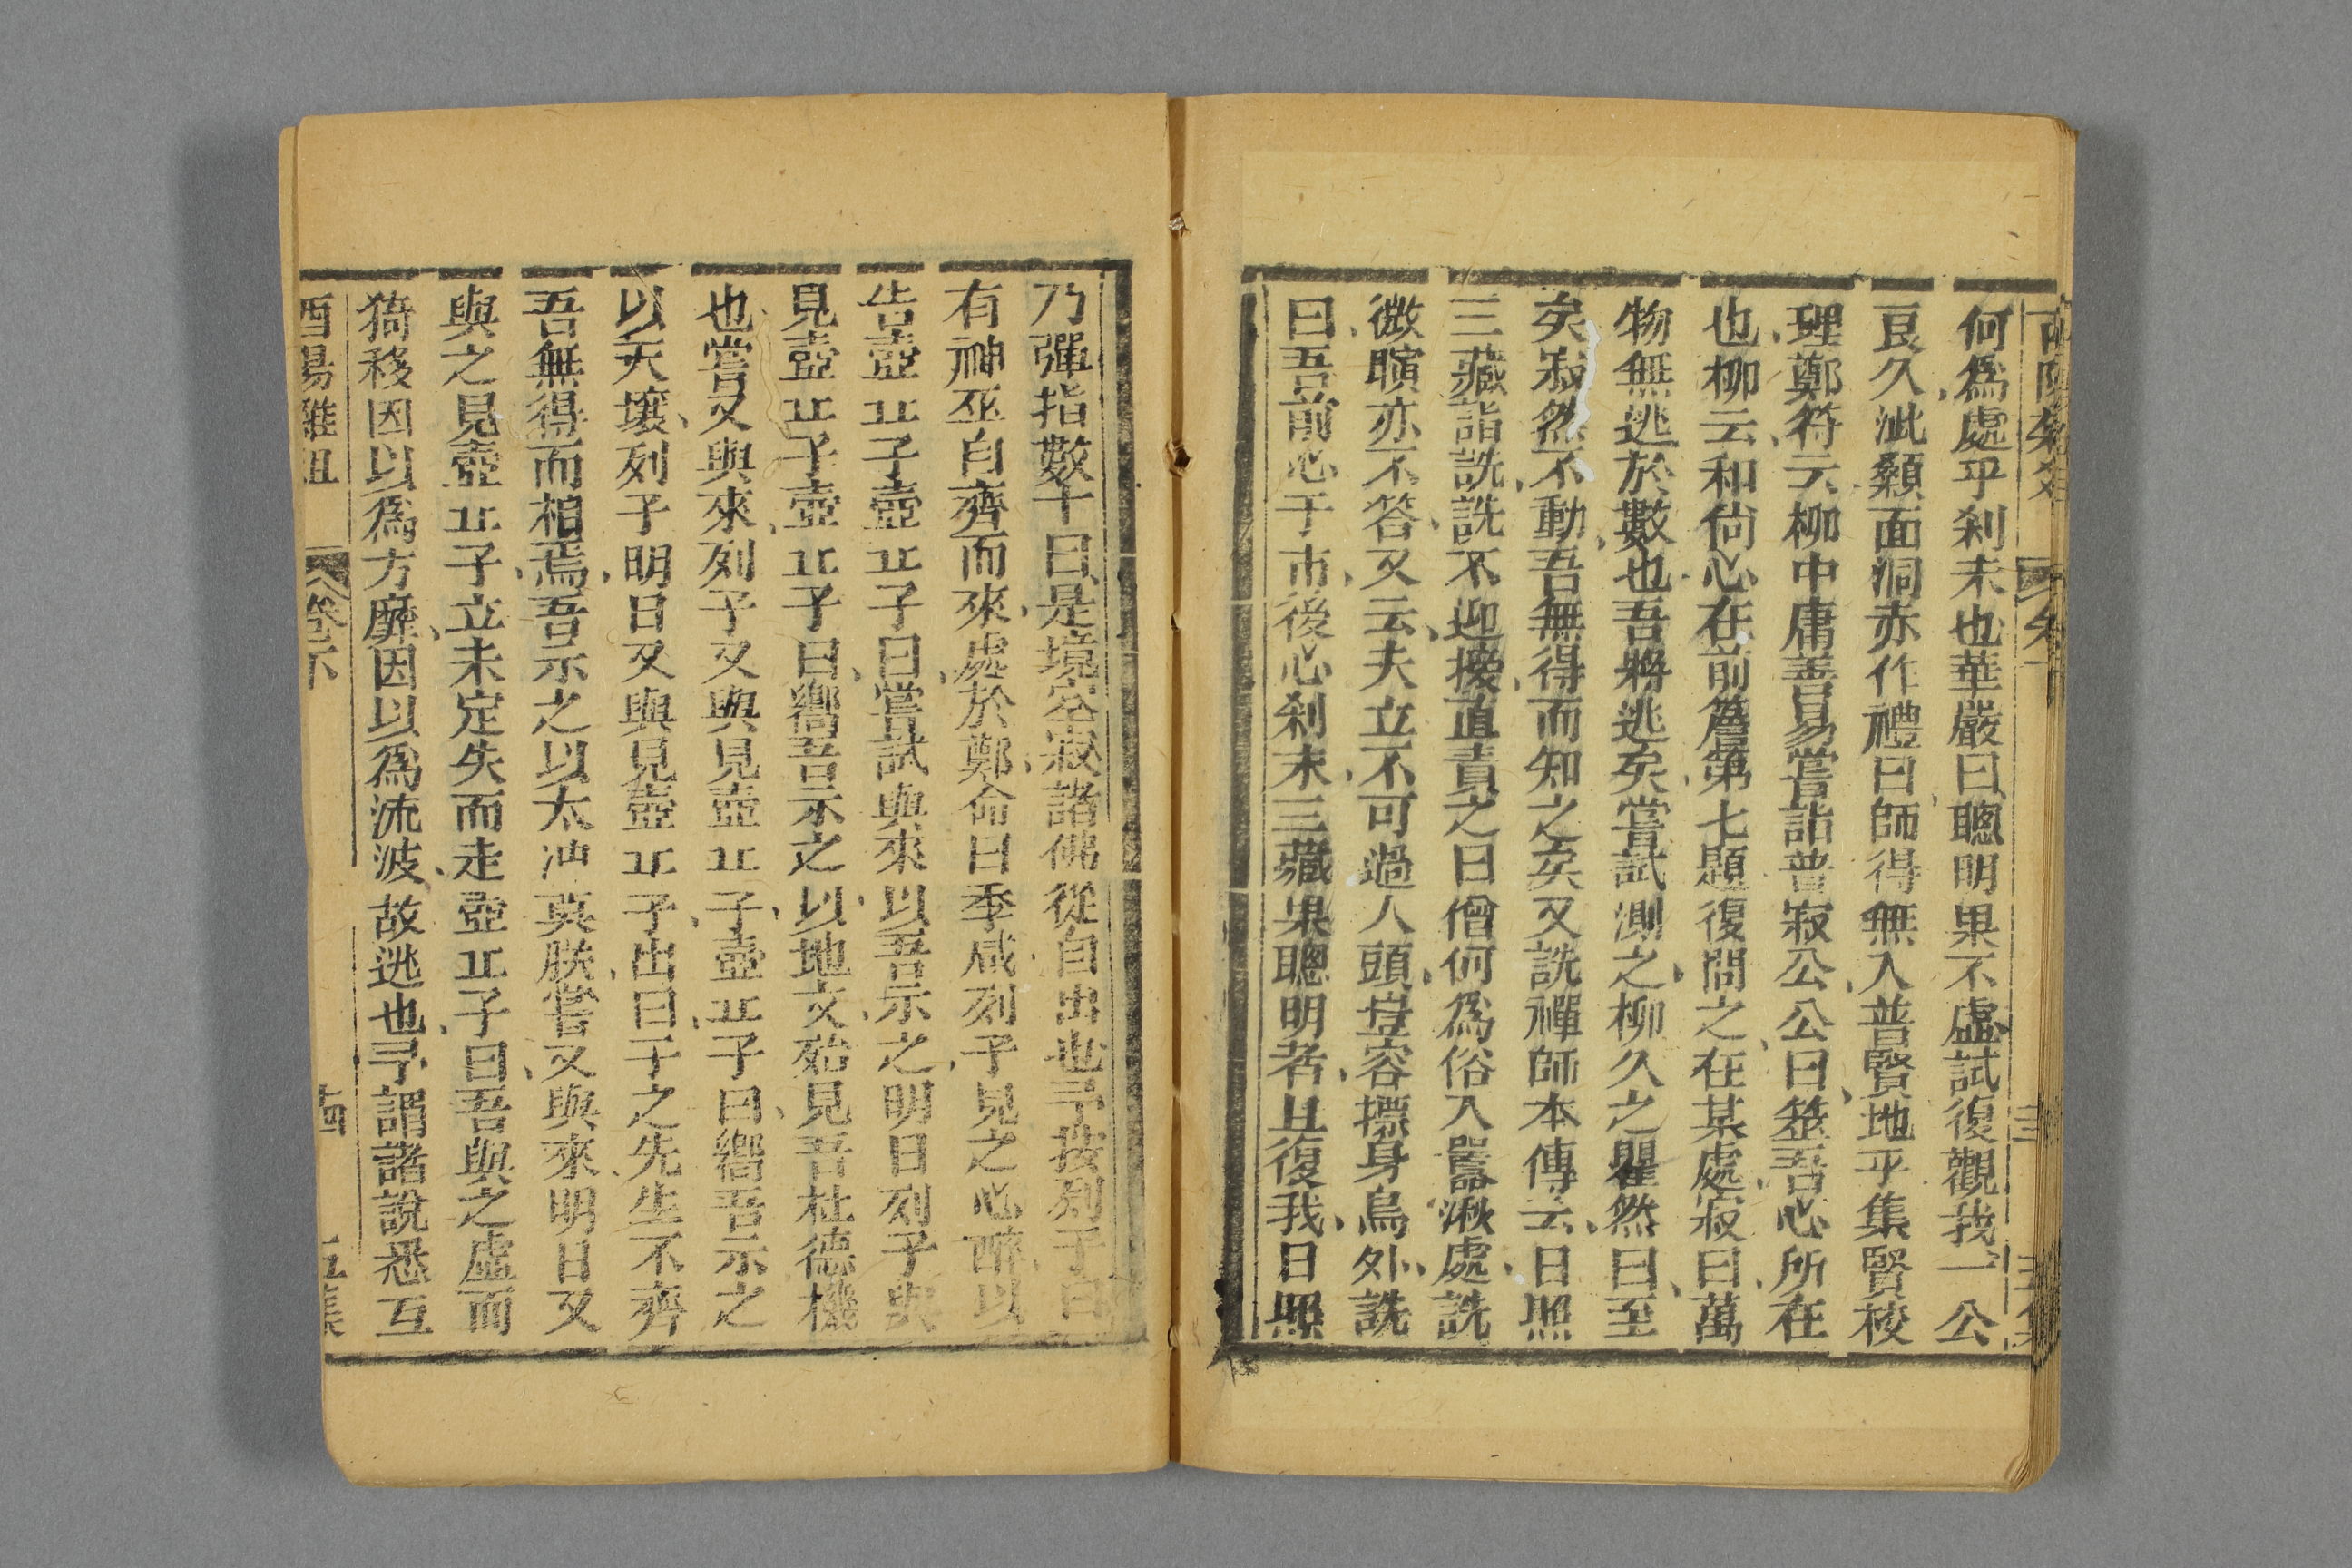 何爲處乎刹末也華嚴曰聰明果不虛試復觀我一公
良久泚顙面洞赤作禮曰師得無入普賢地乎集賢校
理鄭符云柳中庸善易嘗詣普寂公公曰筮吾心所在
也柳云和尙心在前簷第七題復問之在某處寂曰萬
物無逃於數也吾將逃矣嘗試測之柳久之瞿然曰至
矣寂然不動吾無得而知之矣又詵禪師本傳云日照
三藏詣詵詵不迎接直責之曰僧何爲俗入囂湫處詵
微瞚亦不答又云夫立不可過人頭豈容摽身鳥外詵
曰吾前心于市後心刹末三藏果聰明者且復我日照
乃彈指數十曰是境空寂諸佛從自出也予按列子曰
有神巫自齊而來處於鄭命曰季咸列子見之心醉以
告壺丘子壺丘子曰嘗試與來以吾示之明日列子與
見壺丘子壺丘子曰嚮吾示之以地文殆見吾杜德機
也嘗又與來列子又與見壺丘子壺丘子曰嚮吾示之
以天壤列子明日又與見壺丘子出曰子之先生不齊
吾無得而相焉吾示之以太沖莫朕嘗又與來明日又
與之見壺丘子立未定失而走壺丘子曰吾與之虛而
猗移因以爲方靡因以爲流波故逃也予謂諸說悉互
酉陽雜俎
卷下
五集